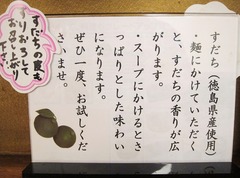 すだち（徳島県産使用）
・麺にかけていただく
と、すだちの香りが広
がります。
・スープにかけるとさ
っぱりとした味わい
になります。
ぜひ一度、お試しくだ
さいませ。
すだちの皮も
すりおろして
お召し上がり
下さい